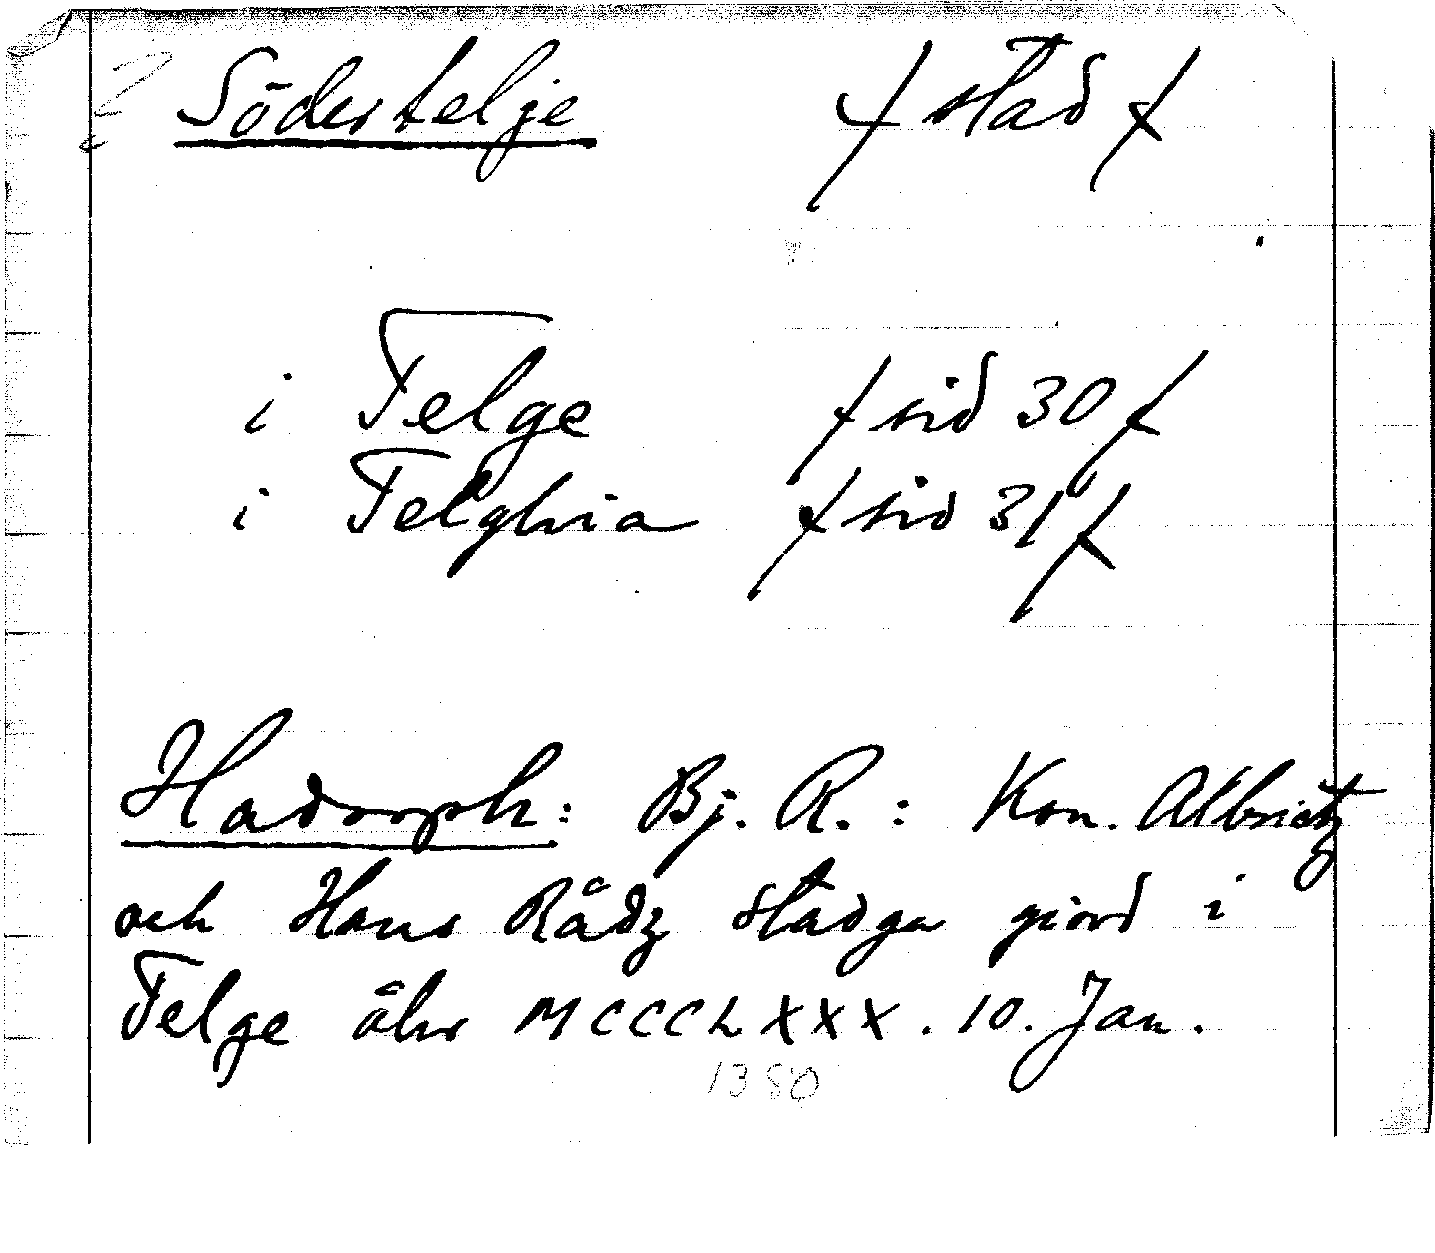 Södertelje / stad /
i Telge / sid 30 /
i Telghia / sid 31 /
Hadorph: Bj. R. : Kon. Albrictz
och Hans Rådz stadga giord i
Telge åhr MCCCLXXX. 10. Jan.
1380